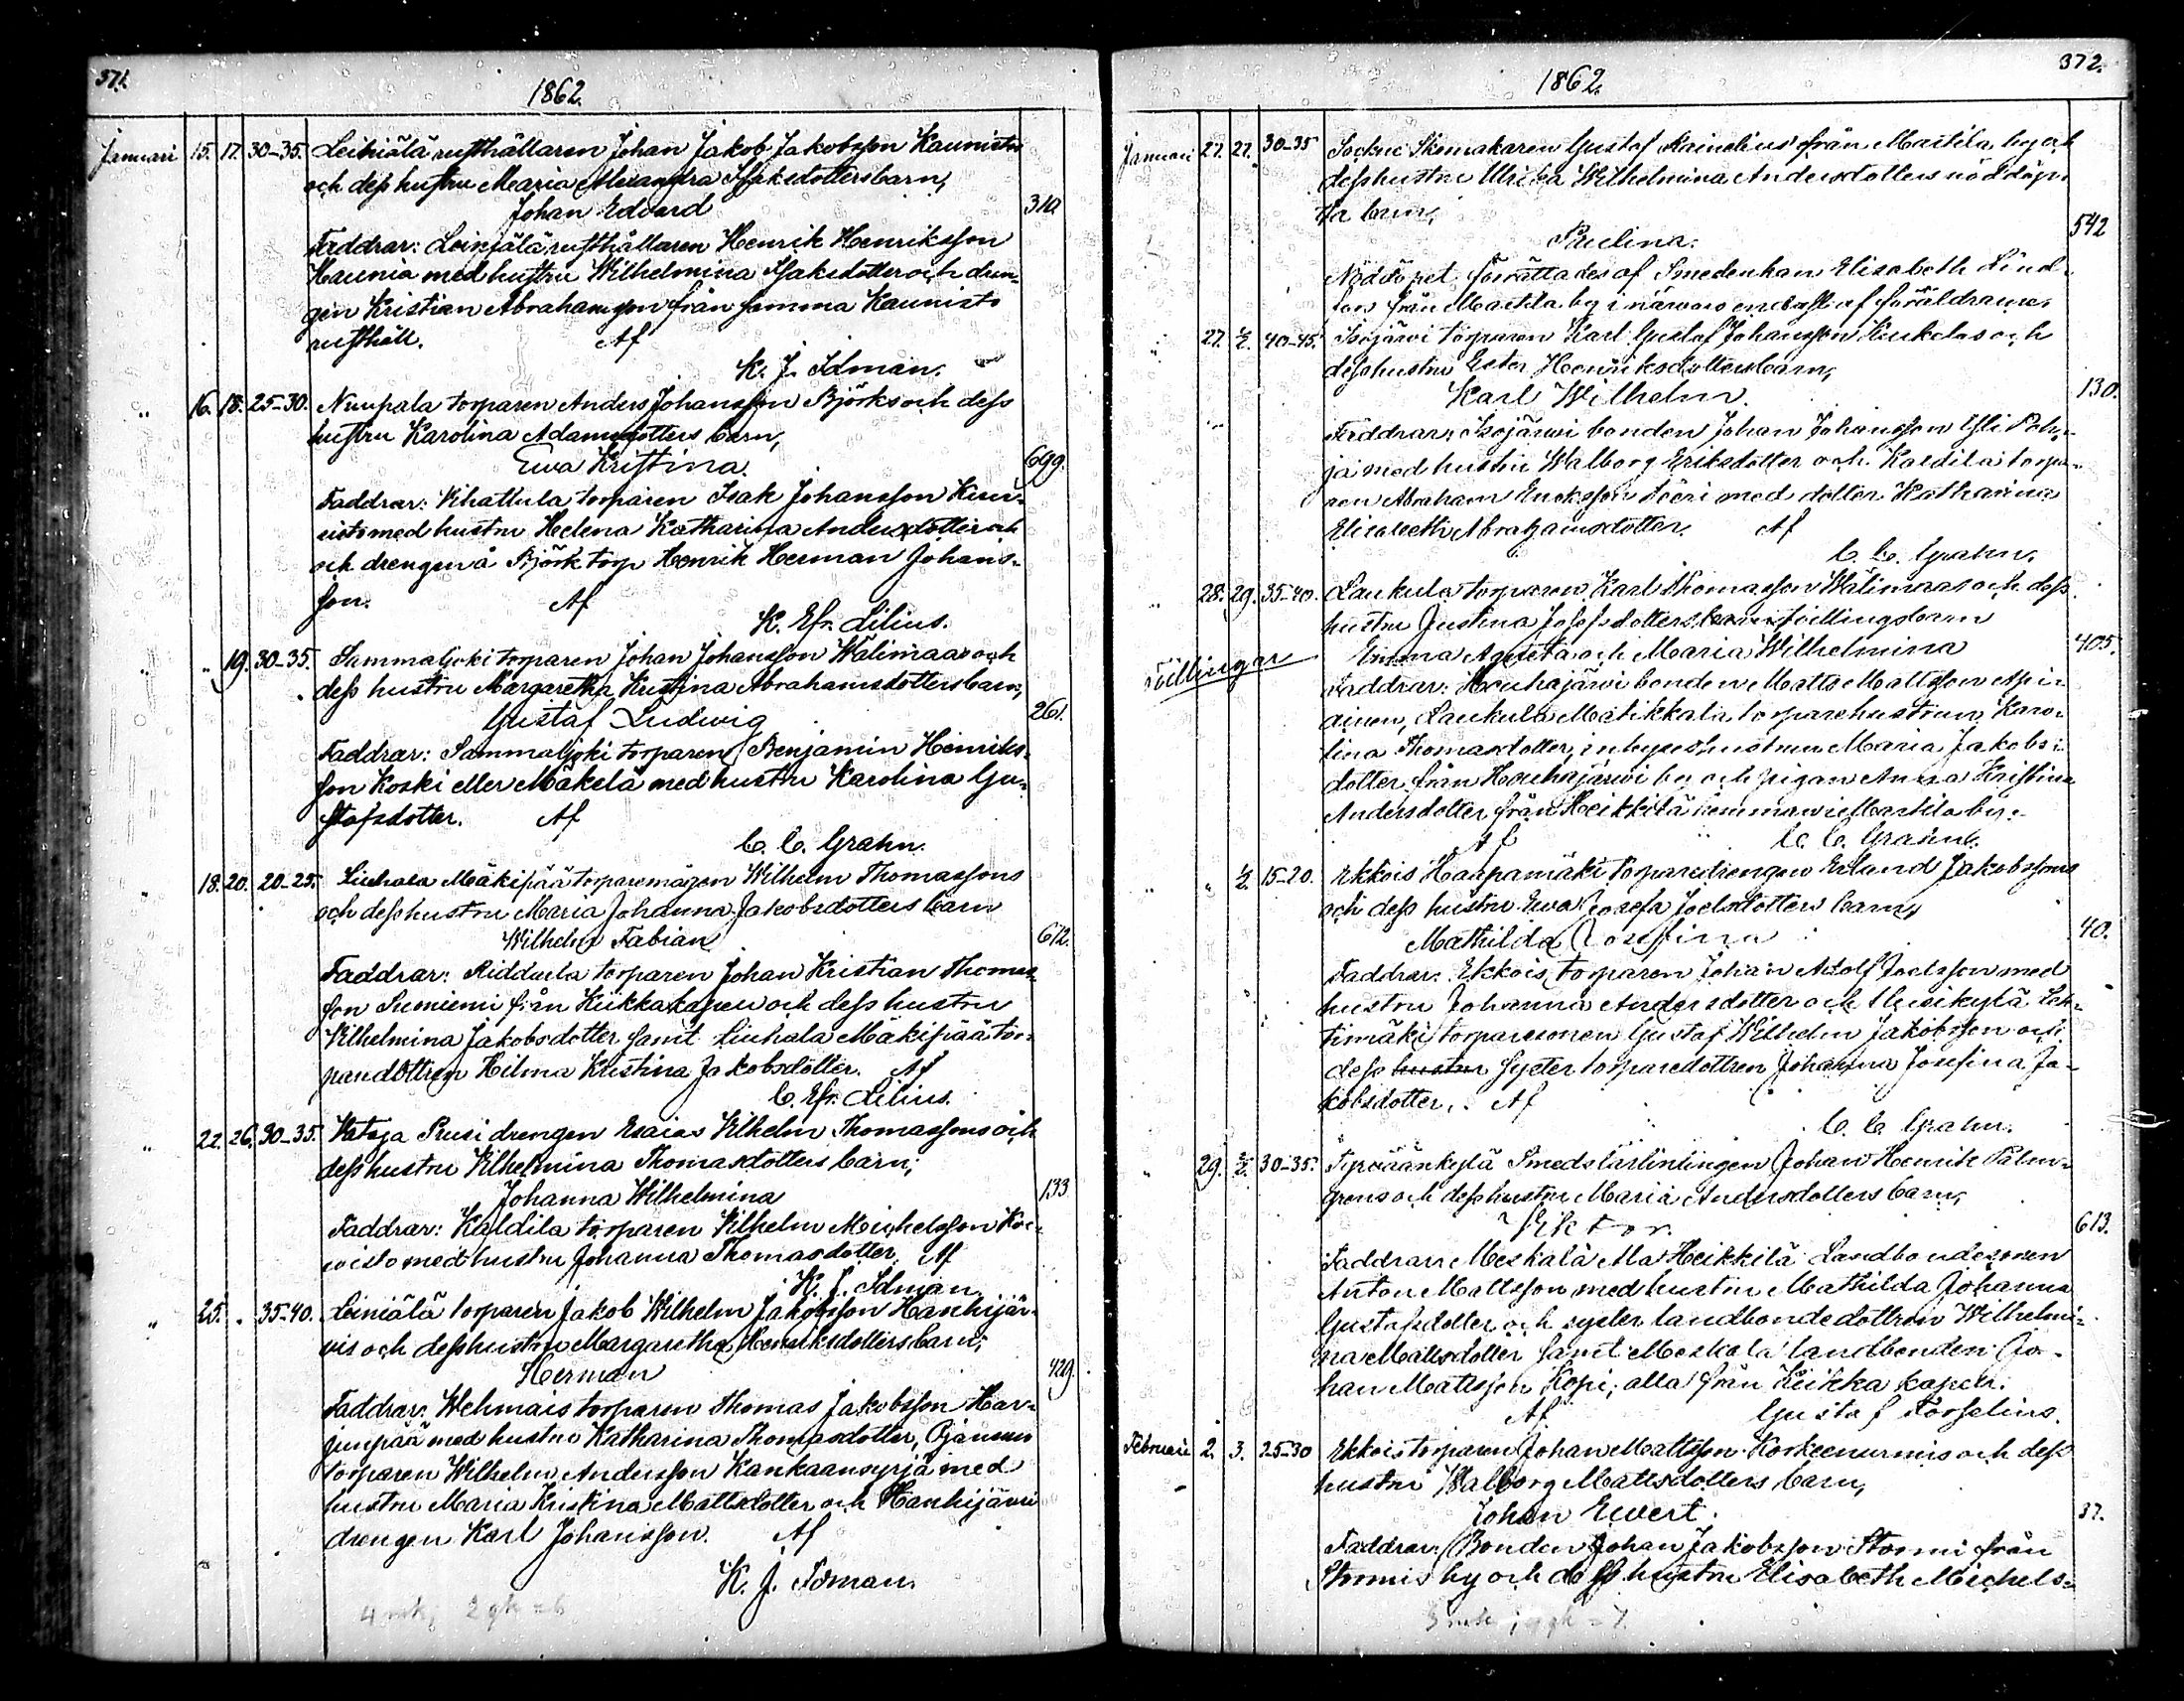 371.
1862.
Januari 15. 17. 30-35. Leiniälä rusthållaren Johan Jakob Jakobsson Kaunistos
och dess hustru Maria Alexandra Isaksdotters barn,
Johan Edvard 310
Faddrar: Leiniälä rusthållaren Henrik Henriksson
Kaunia med hustru Wilhelmina Isaksdotter och dren-
gen Kristian Abrahamsson från samma Kaunisto
rusthåll. Af
K. J. Idman.
" 16. 18. 25-30. Nuupala torparen Anders Johansson Björks och dess
hustru Karolina Adamsdotters barn,
Ewa Kristina. 699.
Faddrar: Vihattula torparen Isak Johansson
med hustru Helena Katharina Andersdotter och
och drengen å Björk torp Henrik Herman Johans-
son. Af
K. Efr. Lilius.
" " 19. 30-35. Sammaljoki torparen Johan Johansson Wälimaas och
dess hustru Margaretha Kristina Abrahamsdotters barn,
Gustaf Ludwig 261.
Faddrar: Sammaljoki torparen Benjamin Henriks-
son Koski eller Mäkelä med hustru Karolina Gu-
stafsdotter. Af
C. C. Grahn.
" 18. 20. 20-25. Liuhala Mäkipää torparemågen Wilhelm Thomassons
och dess hustru Maria Johanna Jakobsdotters barn
Wilhelm Fabian 612.
Faddrar: torparen Johan Kristian Thomas-
son från Kiikka kapell och dess hustru
Wilhelmina Jakobsdotter samt Liuhala Mäkipää tor-
paredottren Hilma Kristina Jakobsdotter. Af
C. Efr. Lilius.
" 22. 26. 30-35. Wataja drengen Esaias Wilhelm Thomassons och
dess hustru Wilhelmina Thomasdotters barn;
Johanna Wilhelmina 133
Faddrar: Kaldila torparen Wilhelm Michelsson Koi-
wisto med hustru Johanna Thomasdotter. Af
K. J. Idman.
" 25. " 35-40. Leiniälä torparen Jakob Wilhelm Jakobsson Hanhijär-
vis och dess hustru Margaretha Henriksdotters barn;
Herman 429.
Faddrar: Wehmais torparen Thomas Jakobsson Har-
junpää med hustru Katharina Thomasdotter,
torparen Wilhelm Andersson Kankaansyrjä med
hustru Maria Kristina Mattsdotter och Hanhijärvi
drengen Karl Johansson. Af
K. J. Idman.
372.
1862.
Januari 27. 27. 30-35 Sockne Skomakaren Gustaf från Maitila by och
dess hustru Ulrika Wilhelmina Andersdotters nöddöp-
ta barn,
Paulina. 542
Nöddopet förrättades af Smedenkan Elisabeth Lind-
fors från Maitila by i närvaro endast af föräldrarne.
" 27. 1/2. 40-45. Isojärvi torparen Karl Gustaf Johansson och
dess hustru Ester Henriksdotters barn,
Karl Wilhelm. 130.
Faddrar: Isojärwi bonden Johan Johansson Yli Poh-
ja med hustru Walborg Eriksdotter och Kaldila torpa-
ren Abraham med dotter Katharina
Elisabeth Abrahamsdotter. Af
C. C. Grahn.
" 28. 29. 35-40. Laukula torparen Karl Thomasson Wälimaas och dess
hustru Justina Josefsdotters tvillingsbarn
Tvillingar Emma Agneta och Maria Wilhelmina 405.
Faddrar: Houhajärwi bonden Matts Mattsson
Laukula Matikkala torparehustrun Karo-
lina Thomasdotter, inhyses hustrun Maria Jakobs-
dotter från Houhajärwi by och pigan Anna Kristina
Andersdotter från Heikkilä hemman i Maitila by.
Af C. C. Grahn.
" " 1/2. 15-20. Ekkois Haapamäki torparedrengen Erland Jakobssons
och dess hustru Ewa Josefa Joelsdotters barn,
Mathilda Josefina 40.
Faddrar: Ekkois torparen Johan Adolf Joelsson med
hustru Johanna Andersdotter och
torparesonen Gustaf Wilhelm Jakobsson och
dess hustru syster torparedottren Johanna Josefina Ja-
kobsdotter. Af
C. C. Grahn.
" 29. 2/2. 30-35. Tyrväänkylä Smedslärlinlingen Johan Henrik Palm-
grens och dess hustru Maria Andersdotters barn,
Viktor. 613.
Faddrar: Meskala Ala Heikkilä Landbondesonen
Anton Mattsson med hustru Mathilda Johanna
Gustafsdotter och syster landbondedottren Wilhelmi-
na Mattsdotter samt Meskala landbonden Jo-
han Mattsson Kopi, alla från Kiikka kapell.
Af Gustaf Forselius.
Februari 2. 3. 25-30 Ekkois torparen Johan Mattsson Korkeenurmis och dess
hustru Walborg Mattsdotters barn,
Johan Ewert. 37.
Faddrar: Bonden Johan Jakobsson Stormi från
Stormis by och dess hustru Elisabeth Michels-